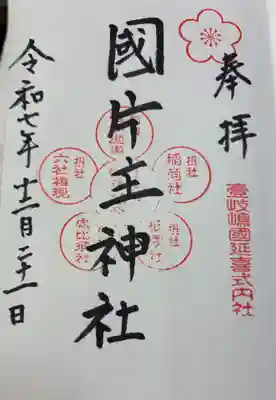 奉拝
壹岐嶋國延喜式内社
國片主神社
摂社
稲荷社
摂社
摂社
六社権現
恵比須社
令和七年十二月二十一日